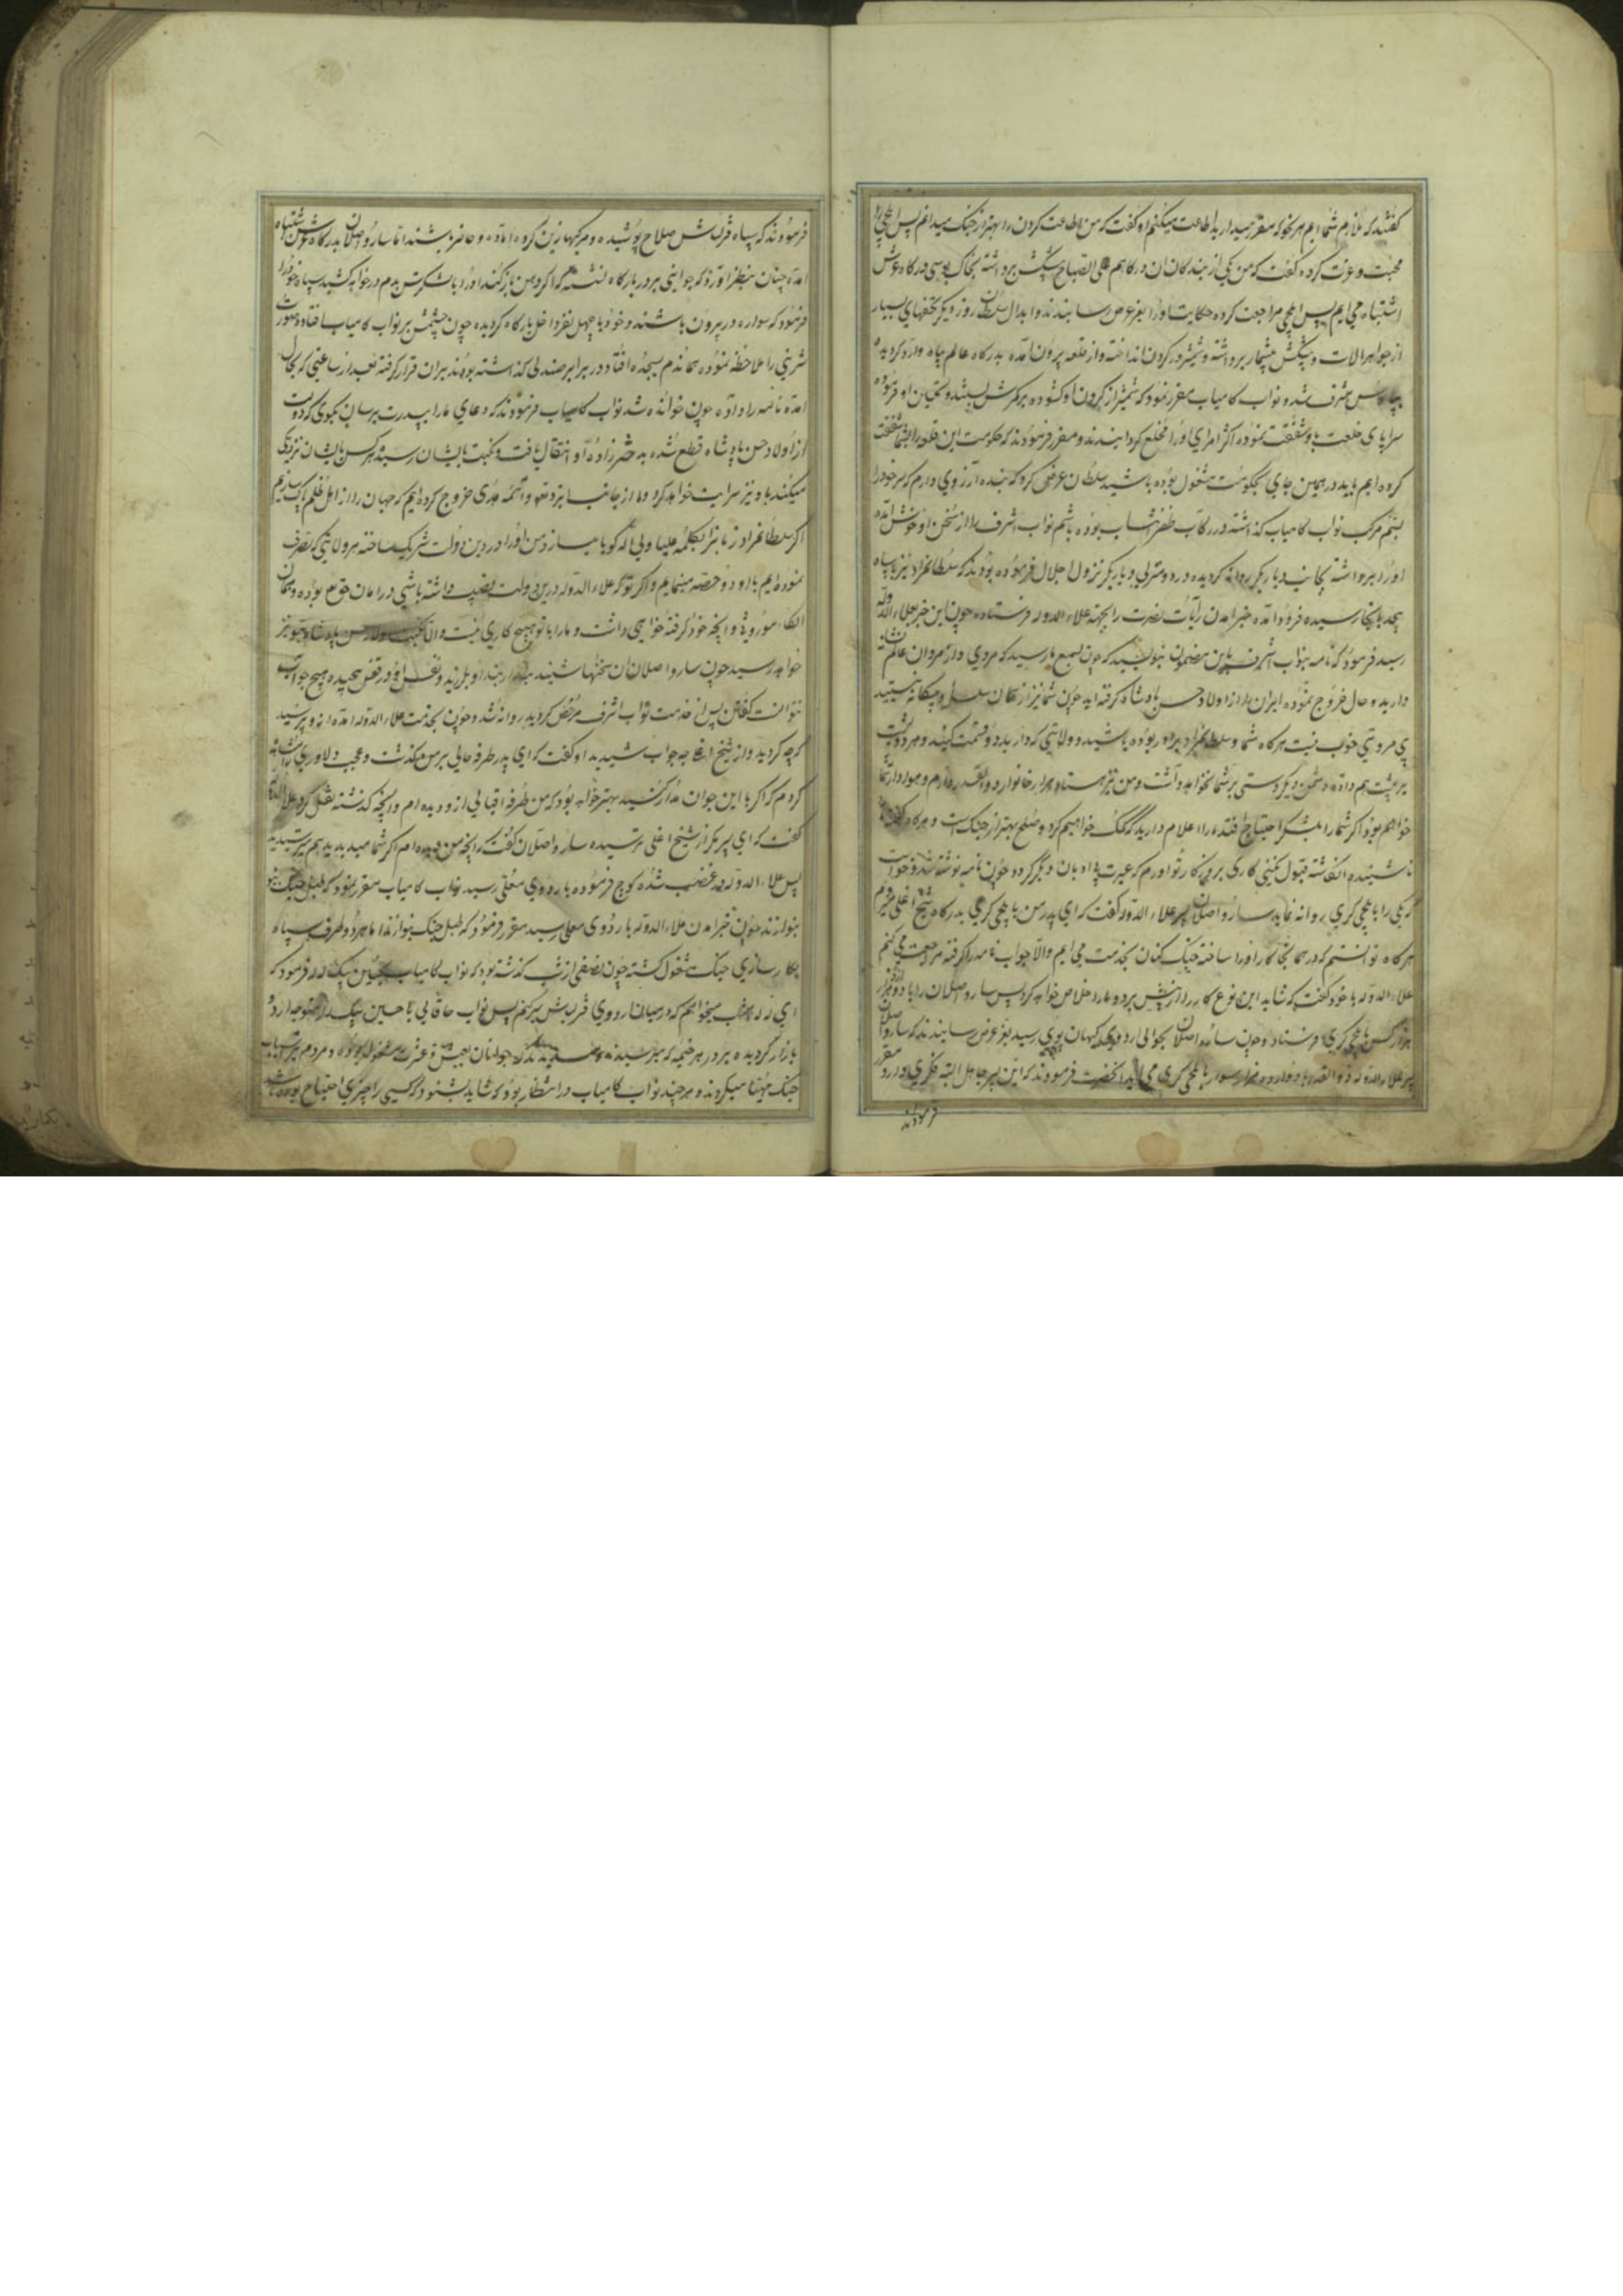 گفتند که ملازم شما ایم هر نحو که مقرر میدارید اطاعت میکنیم او گفت که من اطاعت کردن را بهتر از جنک میدانم پس ایلچی را
محبت و عزت کرده گفت که من یکی از بندکان ان درکاهم علی الصباح پیشکش برداشته بخاک بوسی درکاه عرش
اشتباه می ایم پس ایلچی مراجعت کرده حکایت او را بعرض رسانیدند و ابدال سلطان روز دیکر تحفهای بسیار
از جواهر الات و پیشکش بیشمار برداشته و شمشیر در کردن انداخته و از قلعه بیرون امده بدرکاه عالم پناه وارد کردیده
مشرف شد و نواب کامیاب مقرر نمود که شمشیر از کردن او کشوده بر کمرش بستند و تحسین او فرموده
سراپای خلعت باو شفقت نموده اکثر امرای او را مخلع کردانیدند و مقرر فرمودند که حکومت این قلعه را بشما شفقت
کرده ایم باید در همین جای بحکومت مشغول بوده باشید سلطان عرض کرد که بنده ارزوی دارم که سر خود را
بسم مرکب نواب کامیاب کذاشته در رکاب ظفر انتساب بوده باشم نواب اشرف را از سخن او خوش امده
او را برداشته بجانب دیار بکر روانه کردیده در دو منزلی دیار بکر نزول اجلال فرموده بودند که سلطانمراد نیز با سپاه
بیحد بانجا رسیده فرود امده خبر امدن رایات نصرت را بجهة علاء الدوله فرستاده چون این خبر بعلاء الدوله
رسید فرمود که نامه بنواب اشرف باین مضمون بنویسید که چون بسمع ما رسید که مردی و از مردان عالم نشانه
دارید و حال خروج نموده ایران را از اولاد حسن پادشاه کرفته اید چون شما نیز از همان سلسله و بیکانه نیستید
بی مروتی خوب نیست هرکاه شما و سلطانمراد برادر بوده باشید و ولایتی که دارید دو قسمت کنید و هر دو پشت
بر پشت هم داده دشمن دیکر دستی بر شما نخواهد داشت و من نیز هشتاد هزار خانوار ذوالقدر دارم و هوادار شما
خواهم بود اکر شما را بلشکر احتیاج افتد ما را اعلام دارید که کمک خواهیم کرد و صلح بهتر از جنک است و هرکاه گفته
ناشنیده انکاشته قبول نکنی کاری بروزکار تو اورم که عیرت دیکر کردد چون نامه نوشته شد و خواست
که یکی را با ایلچی کری روانه نماید سارو اصلان پسر علاء الدوله گفت که ای پدر من با ایلچی کری بدرکاه شیخ اغلی میروم
هرکاه توانستم که در همانجا کار او را ساخته جنک کنان بخدمت می ایم والا جواب نامه را کرفته مراجعت می کنم
علاء الدوله با خود گفت که شاید این نوع کار را از پیش برد و ما را خلاص خواهد کرد پس سارو اصلان را با دوازده هزار
هزار کس بایلچی کری فرستاد و چون سارو اصلان بحوالی اردوی کیهان پوی رسید بعز عرض رسانیدند که سارو اصلان
پسر علاء الدوله ذوالقدر با دوازده هزار سوار بایلچی کری می اید انحضرت فرمودند که این پسر جاهل البته فکری دارد مقرر
فرمودند
فرمودند که سپاه قزلباش صلاح پوشیده و مرکبها زین کرده اماده و حاضر باشند اما سارو اصلان بدرکاه عرش اشتباه
امده چنان بنظر اورد که جوانی بر در بارکاه نشسته که اکر دهن باز کند او را با لشکرش بدم در خواهد کشید سپاه خود را
فرمود که سواره در بیرون باشند و خود با چهل نفر داخل بارکاه کردیده چون چشمش بر نواب کامیاب افتاده صورت
شریفی را ملاحظه نموده همانندم بسجده افتاد و در برابر صندلی کذاشته بودند بران قرار کرفته بعد از ساعتی که بحال
امده نامه را داده چون خوانده شد نواب کامیاب فرمودند که دعای ما را بپدرت برسان بکوی که دولت
از اولاد حسن پادشاه قطع شده به دخترزاده او انتقال یافت و نکبت بایشان رسید هر کس بایشان نزدیکی
میکند باو نیز سرایت خواهد کرد و ما از جانب ایزد تعالی و ائمه هدی خروج کرده ایم که جهان را از اهل ظلم پاک سازیم
اکر سلطانمراد زبانرا بکلمه علیا ولی الله کویا میسازد من او را در دین دولت شریک ساخته هر ولایتی که تصرف
نموده ایم با او دو حصه مینمایم و اکر تو که علاء الدوله درین دولت نصیب داشته باشی در امان حق بوده و همان
الکاء موروثی و انچه خود کرفته خواهی داشت و ما را با تو هیچ کاری نیست والا نکبت اولاد حسن پادشاه بتو نیز
خواهد رسید چون سارو اصلان ان سخنها شنید بند از بند او بلرزید و نفس او در قفس پیچیده هیچ جواب
نتوانست گفتن پس از خدمت نواب اشرف مرخص کردید روانه شد و چون بخدمت علاء الدوله امده از او پرسید
که چه کردید و از شیخ اغلی چه جواب شنیدید او گفت که ای پدر طرفه حالی بر من کذشت و عجب دلاوری
کردم که اکر با این جوان مدار کنید بهتر خواهد بود که من طرفه اقبالی از و دیده ام و انچه کذشته نقل کرد علاء الدوله
گفت که ای پسر مکر از شیخ اغلی ترسیده سارو اصلان گفت که انچه من دیده ام اکر شما میدیدید هم میترسیدید
پس علاء الدوله در غضب شده کوچ فرموده باردوی معلی رسید نواب کامیاب مقرر نمود که طبل جنک
بنوازند چون خبر امدن علاء الدوله باردوی معلی رسید مقرر فرمود که طبل جنک بنوازند اما هر دو طرف سپاه
بکار سازی جنک مشغول کشته چون نصفی از شب کذشته بود که نواب کامیاب بحسین بیک لله فرمود که
ای لله امشب میخواهم که در میان اردوی قزلباش سیر کنم پس نواب خاقانی با حسین بیک لله متوجه اردو
بازار کردیده بر در هر خیمه که میرسیدند میدیدند که جوانان بعیش و عشرت مشغول بوده و مردم پیر اسباب
جنک مهیا میکردند و هر چند نواب کامیاب در انتظار بود که شاید بشنود که کسی را چیزی احتیاج بوده باشد